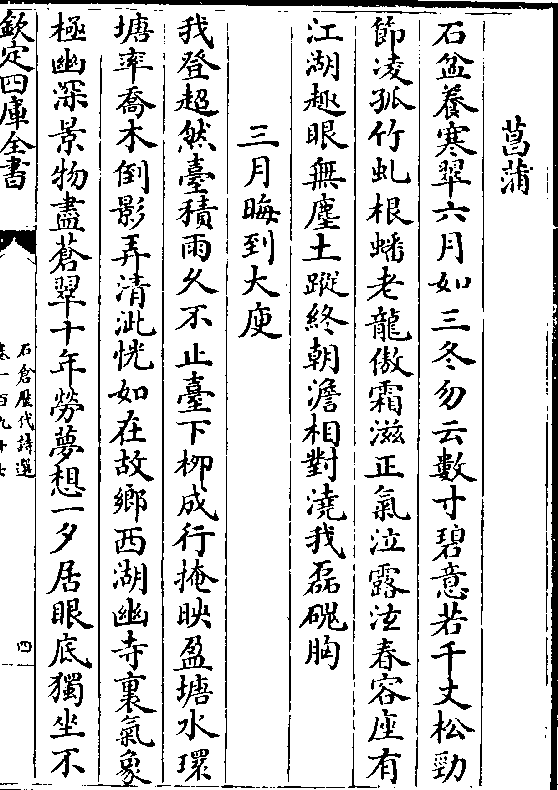 菖蒲
石盆養寒翠六月如三冬勿云數寸碧意若千丈松勁
節凌孤竹虬根蟠老龍傲霜滋正氣泣露泫春容座有
江湖趣眼無塵土蹤終朝澹相對澆我磊磈胸
三月晦到大庾
我登超然臺積雨久不止臺下柳成行掩映盈塘水環
塘率喬木倒影弄清泚恍如在故鄉西湖幽寺裏氣象
極幽深景物盡蒼翠十年勞夢想一夕居眼底獨坐不
欽定四庫全書
石倉歷代詩選
四